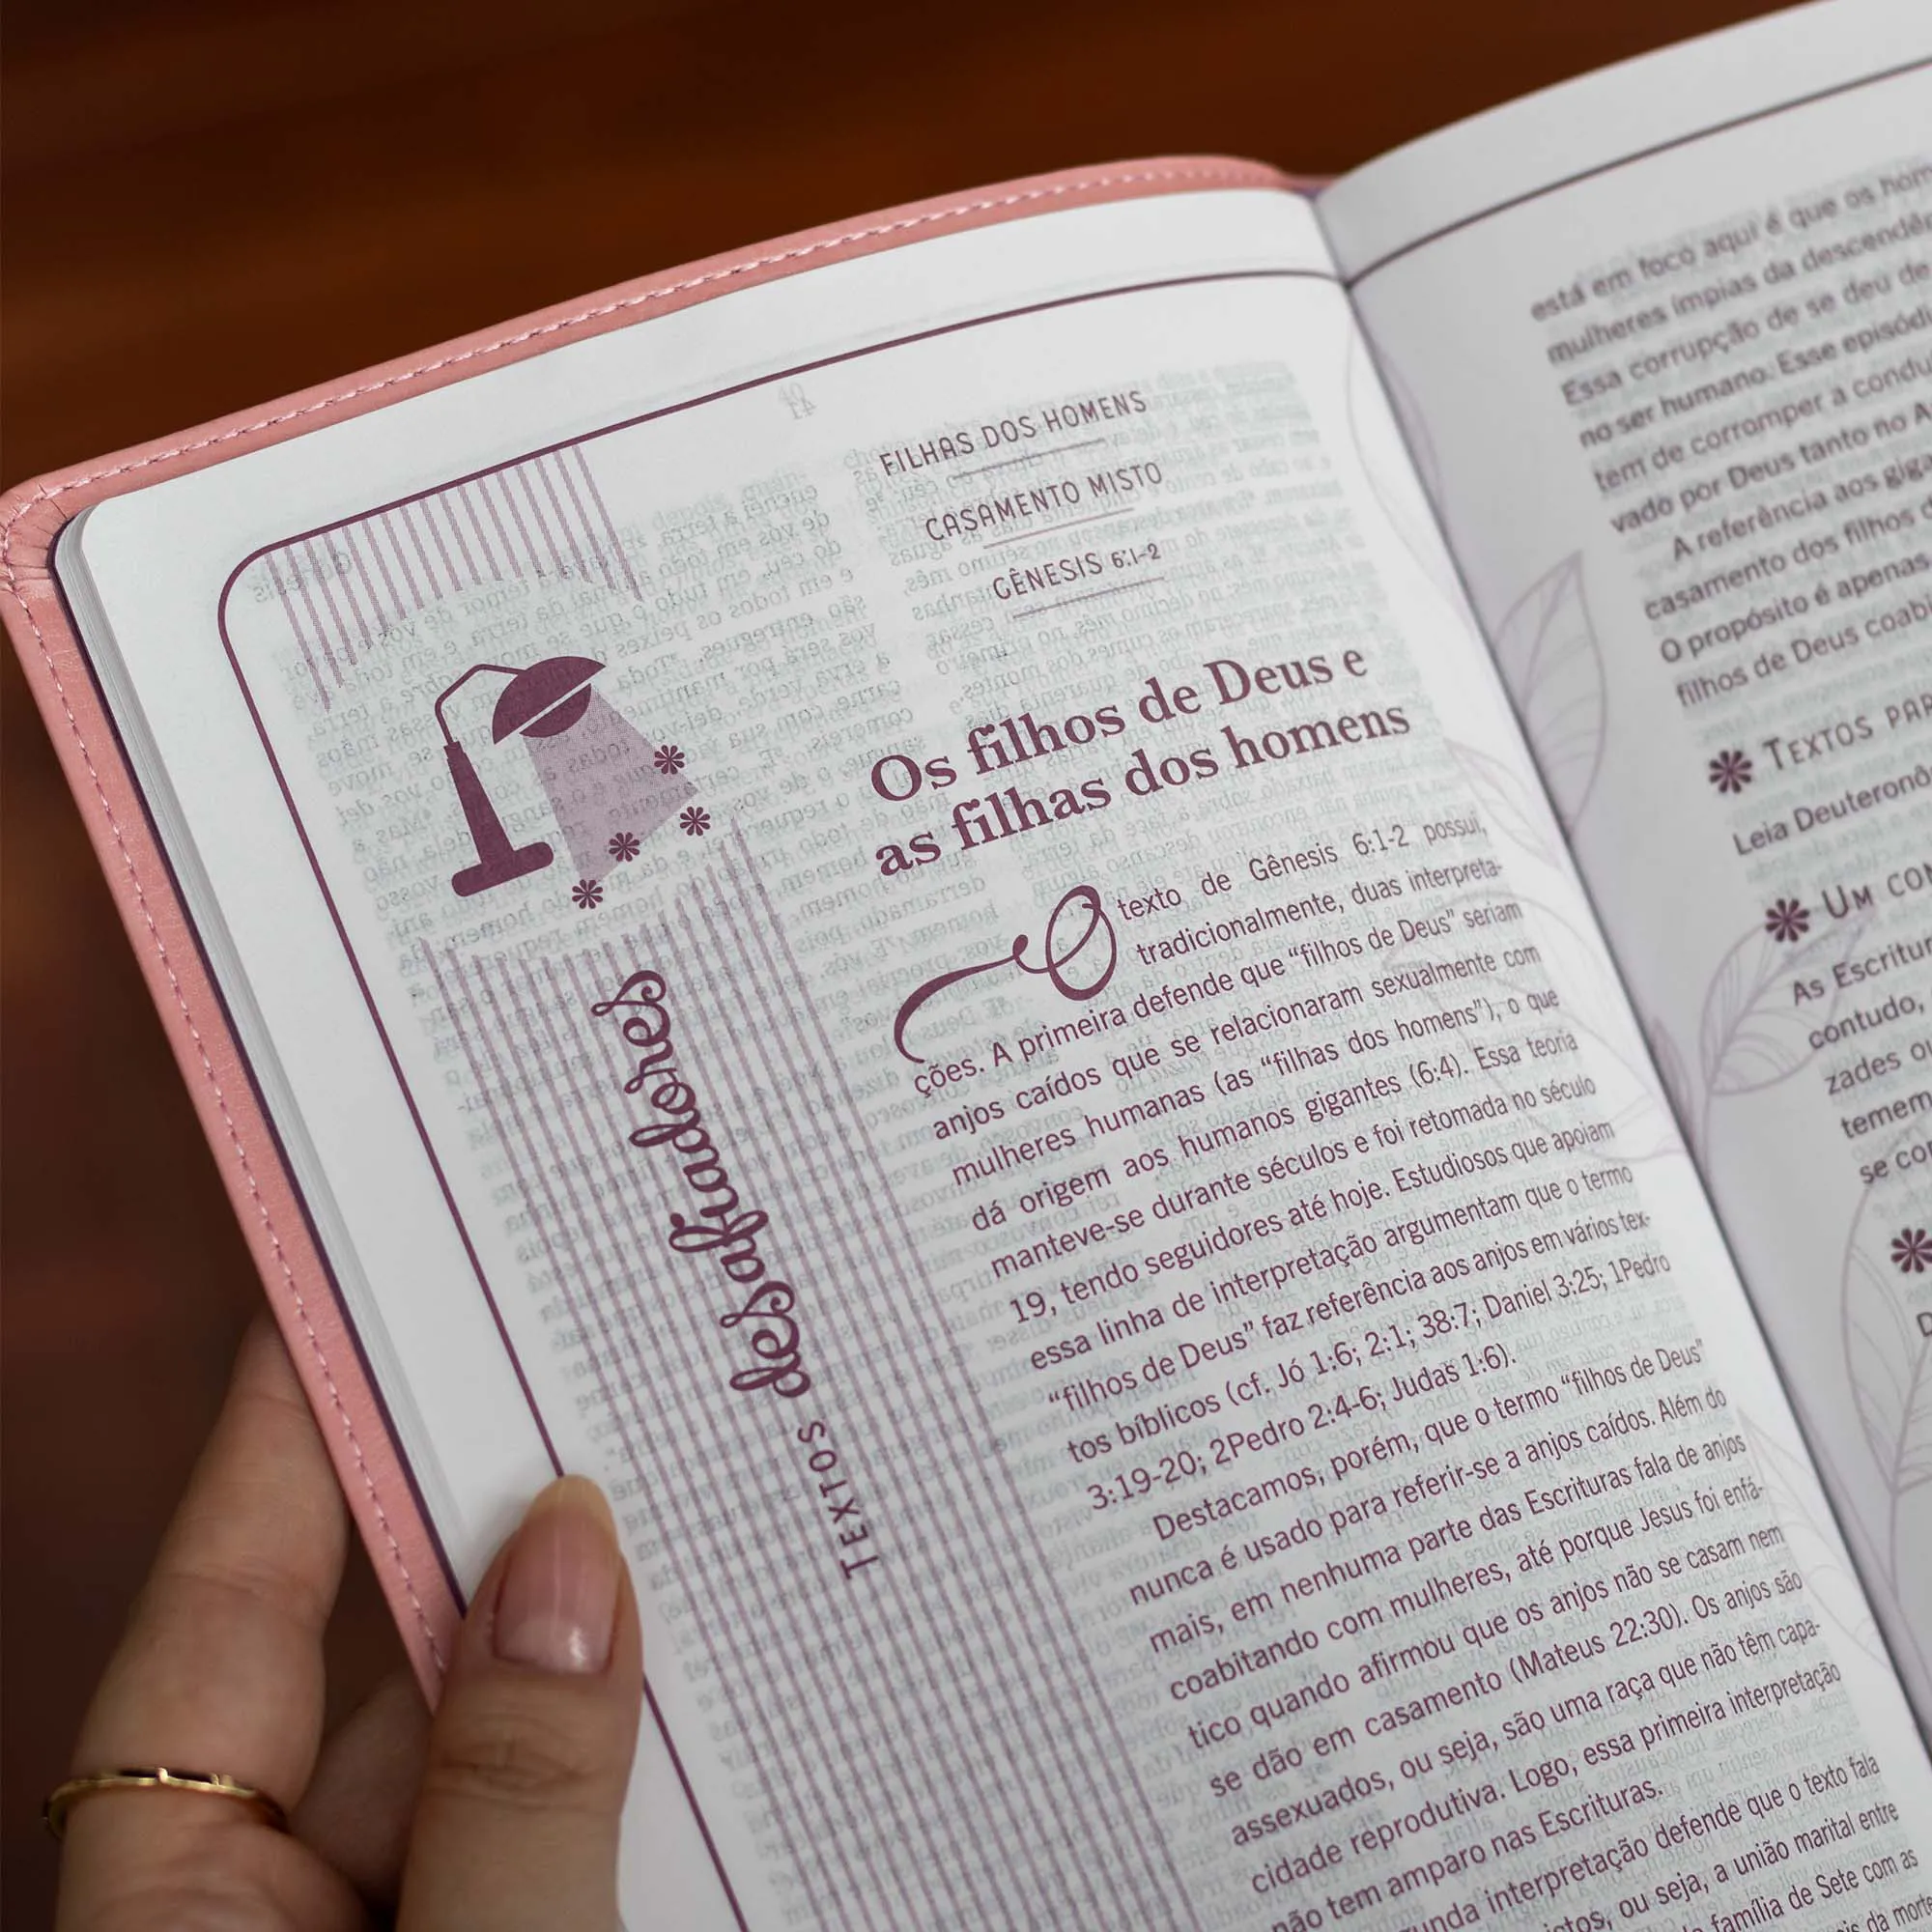 FILHAS DOS HOMENS
CASAMENTO MISTO
GÊNESIS 6:1-2
Os filhos de Deus e
as filhas dos homens
TEXTOS desafiadores
O texto de Gênesis 6:1-2 possui,
tradicionalmente, duas interpreta-
ções. A primeira defende que “filhos de Deus” seriam
anjos caídos que se relacionaram sexualmente com
mulheres humanas (as “filhas dos homens”), o que
dá origem aos humanos gigantes (6:4). Essa teoria
manteve-se durante séculos e foi retomada no século
19, tendo seguidores até hoje. Estudiosos que apoiam
essa linha de interpretação argumentam que o termo
“filhos de Deus” faz referência aos anjos em vários tex-
tos bíblicos (cf. Jó 1:6; 2:1; 38:7; Daniel 3:25; 1Pedro
3:19-20; 2Pedro 2:4-6; Judas 1:6).
Destacamos, porém, que o termo “filhos de Deus”
nunca é usado para referir-se a anjos caídos. Além do
mais, em nenhuma parte das Escrituras fala de anjos
coabitando com mulheres, até porque Jesus foi enfá-
tico quando afirmou que os anjos não se casam nem
se dão em casamento (Mateus 22:30). Os anjos são
assexuados, ou seja, são uma raça que não têm capa-
cidade reprodutiva. Logo, essa primeira interpretação
não tem amparo nas Escrituras.
interpretação defende que o texto fala
ou seja, a união marital entre
família de Sete com as
está em foco aqui é que os
mulheres ímpias da
Essa corrupção de se deu de
no ser humano. Esse
tem de corromper a
vado por Deus tanto no
A referência aos
casamento dos filhos
O propósito é apenas
filhos de Deus
TEXTOS
Leia
UM
As
contudo,
zades
se